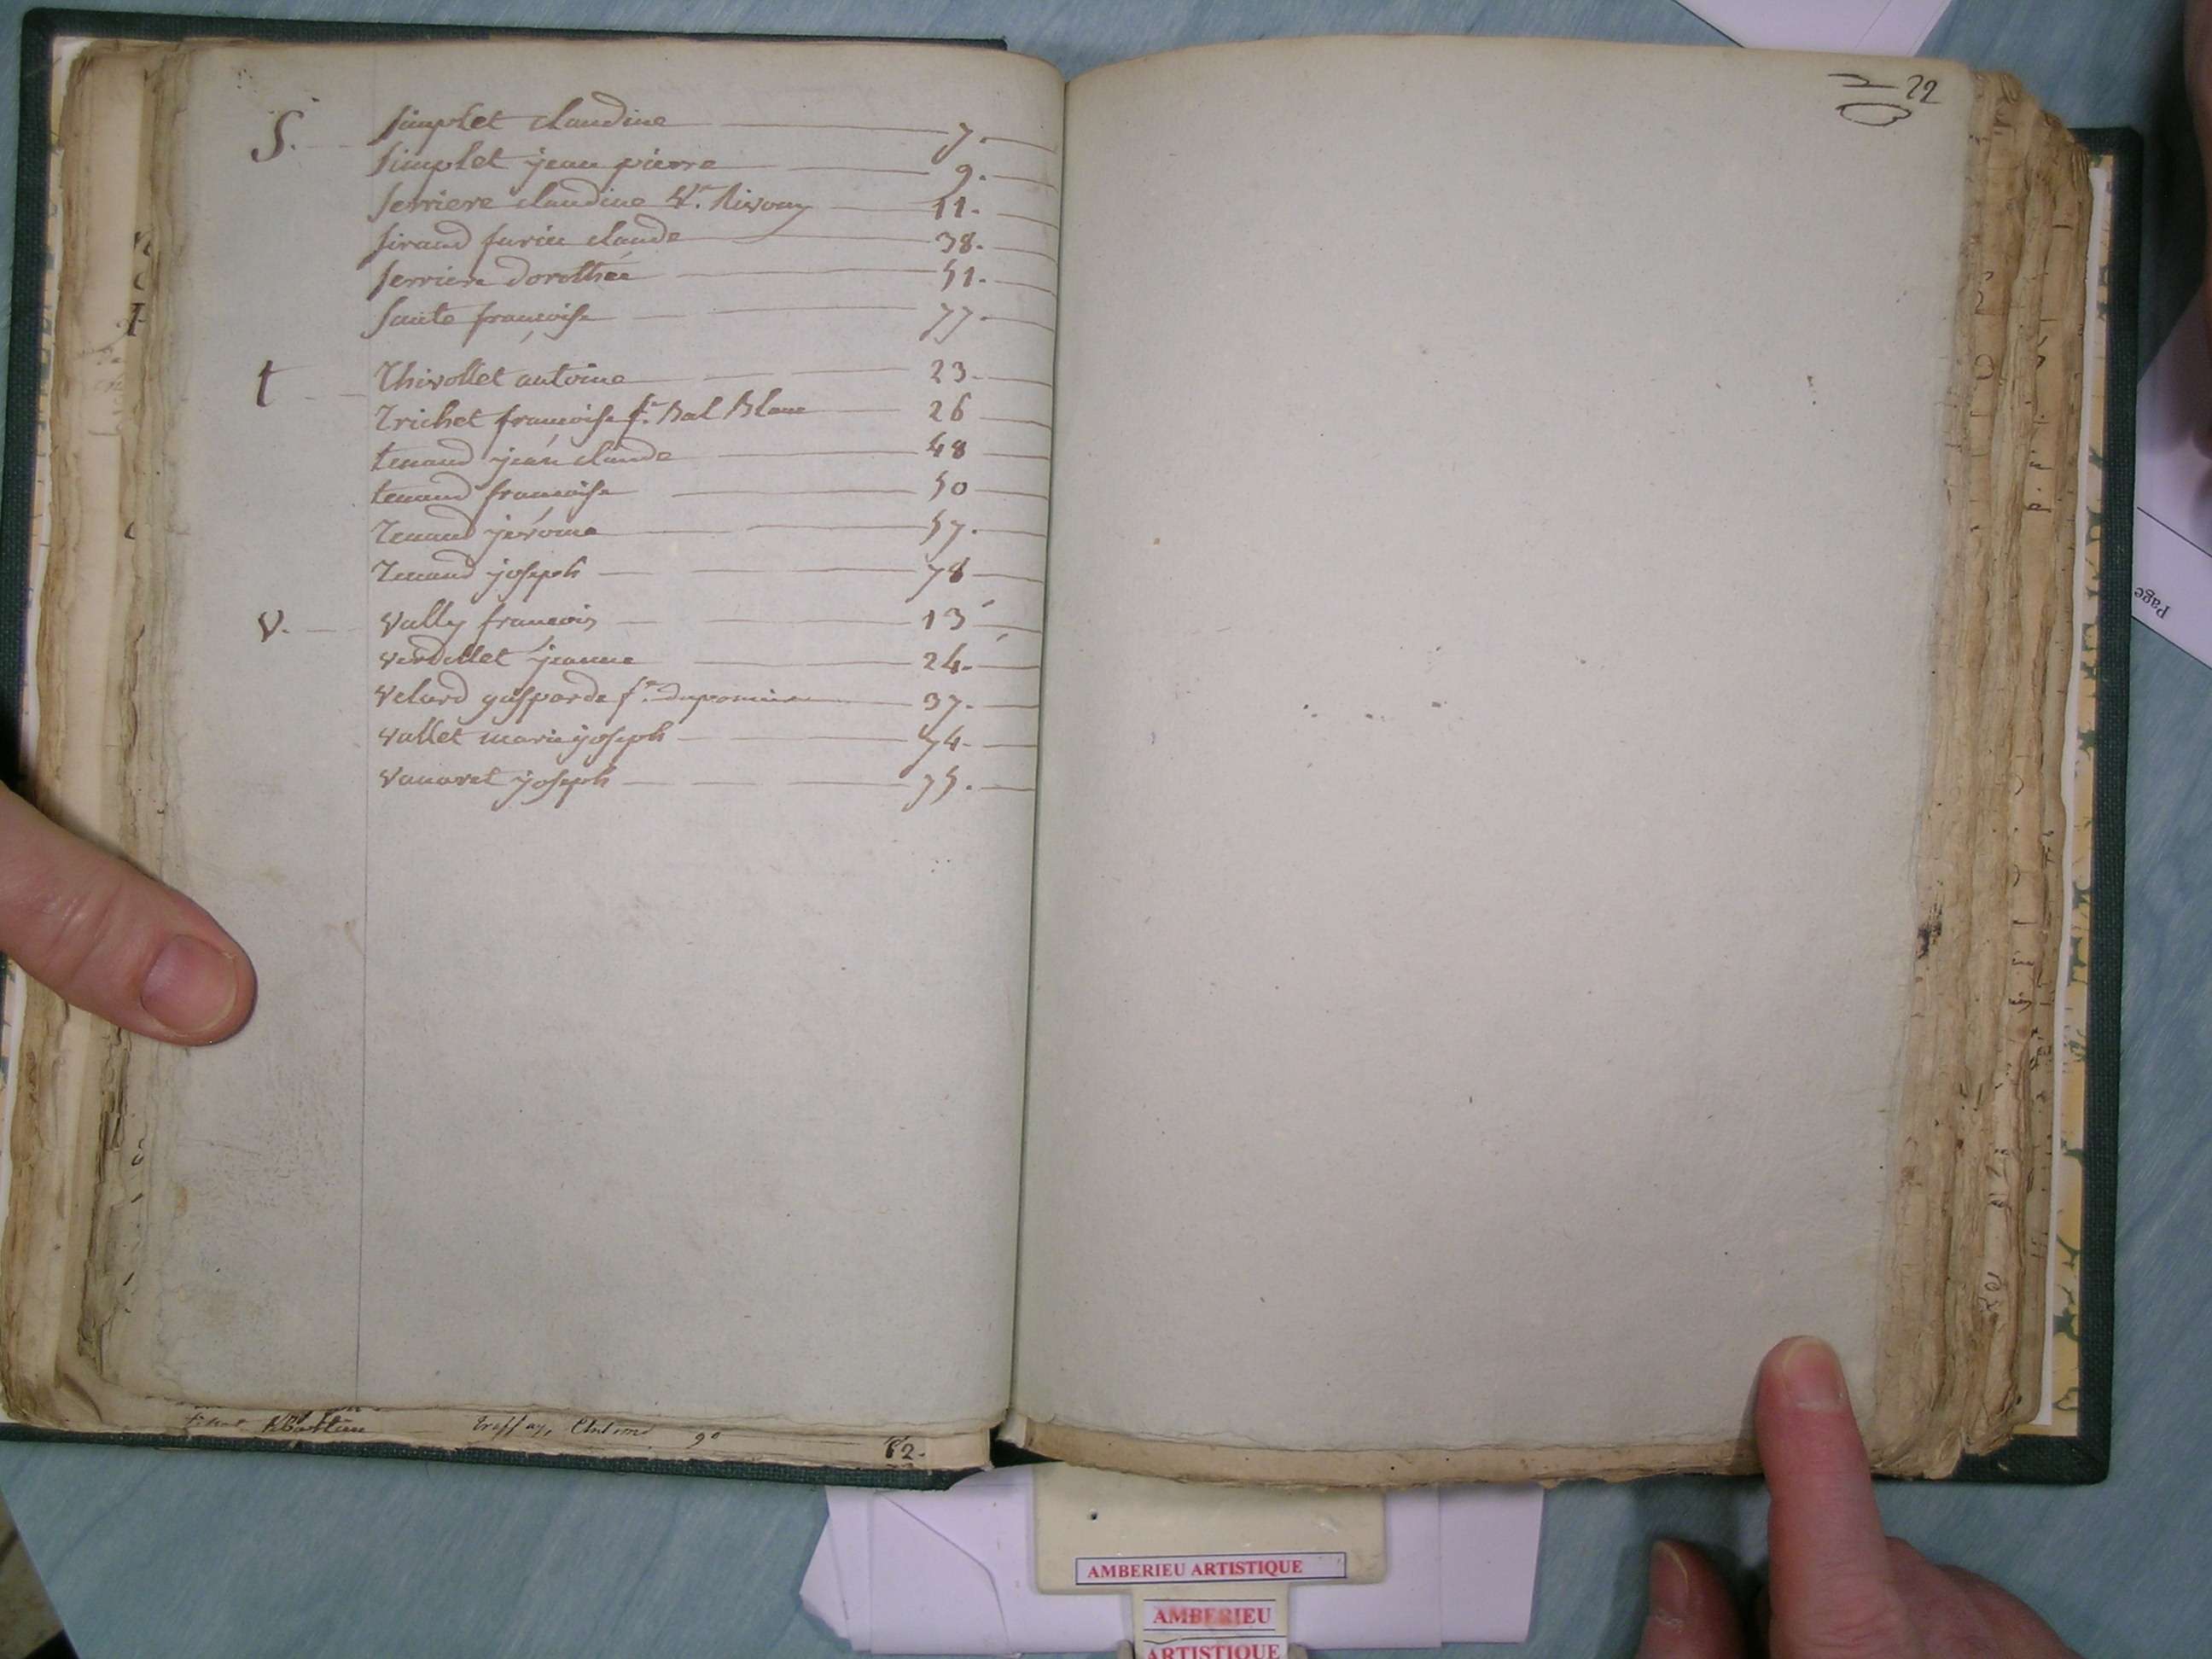 S. Simplet claudine 7.
Simplet jean pierre 9.
Serriere claudine Ve. Rivoury 11.
Siraud claude 38.
Serriere dorothée 51.
Saute francoise 77.
t Thivollet antoine 23.
Trichet francoise fe. Bal Blanc 26
tenand jean claude 48
tenand francoise 50
Tenand jerome 57.
Tenand joseph 78
V. Vally francois 13
Verdellet jeanne 24.
Velard gasparde fe. 37.
Vallet marie joseph 54.
Vanaret joseph 75.
Treffay, 82.
22
Page
AMBERIEU ARTISTIQUE
AMBERIEU
ARTISTIQUE